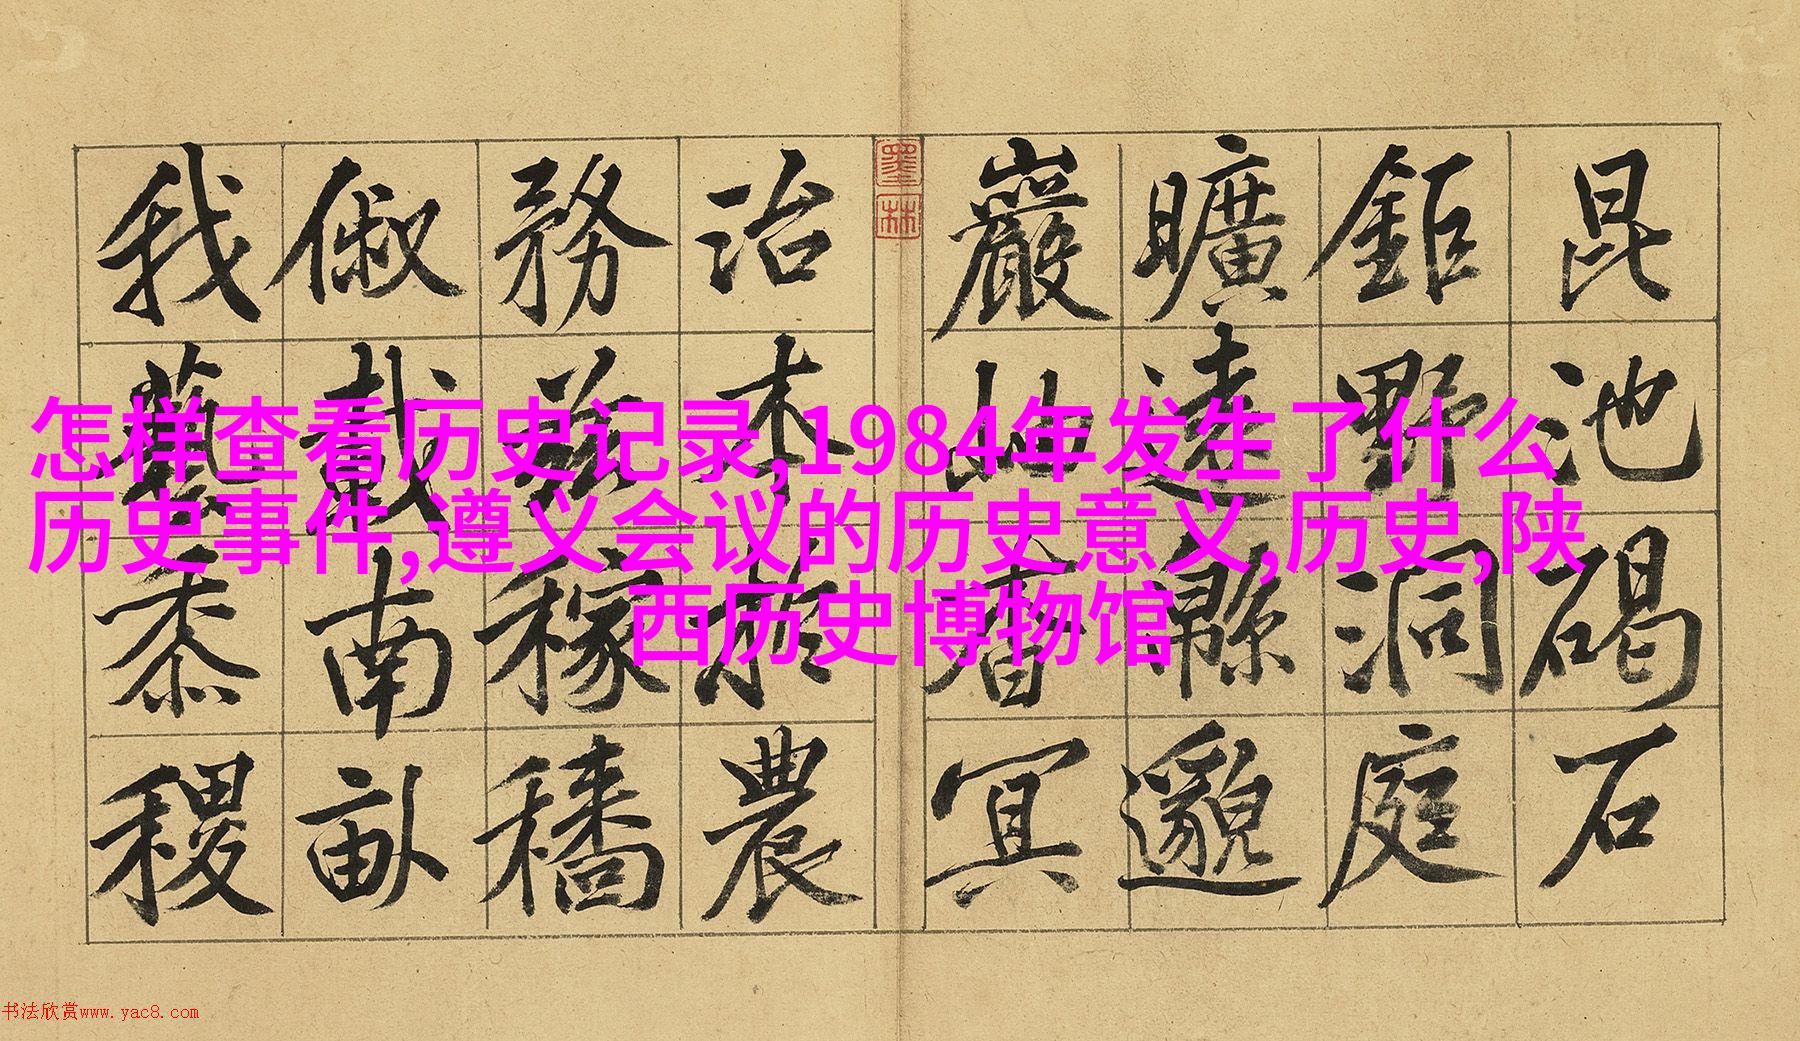 昆池碣石
鉅野洞庭
曠遠緜邈
巖岫杳冥
治本於農
務茲稼穡
俶載南畝
我藝黍稷
墨林
怎样查看历史记录,1984年发生了什么
历史事件,遵义会议的历史意义,历史,陕
西历史博物馆
书法欣赏www.yac8.com